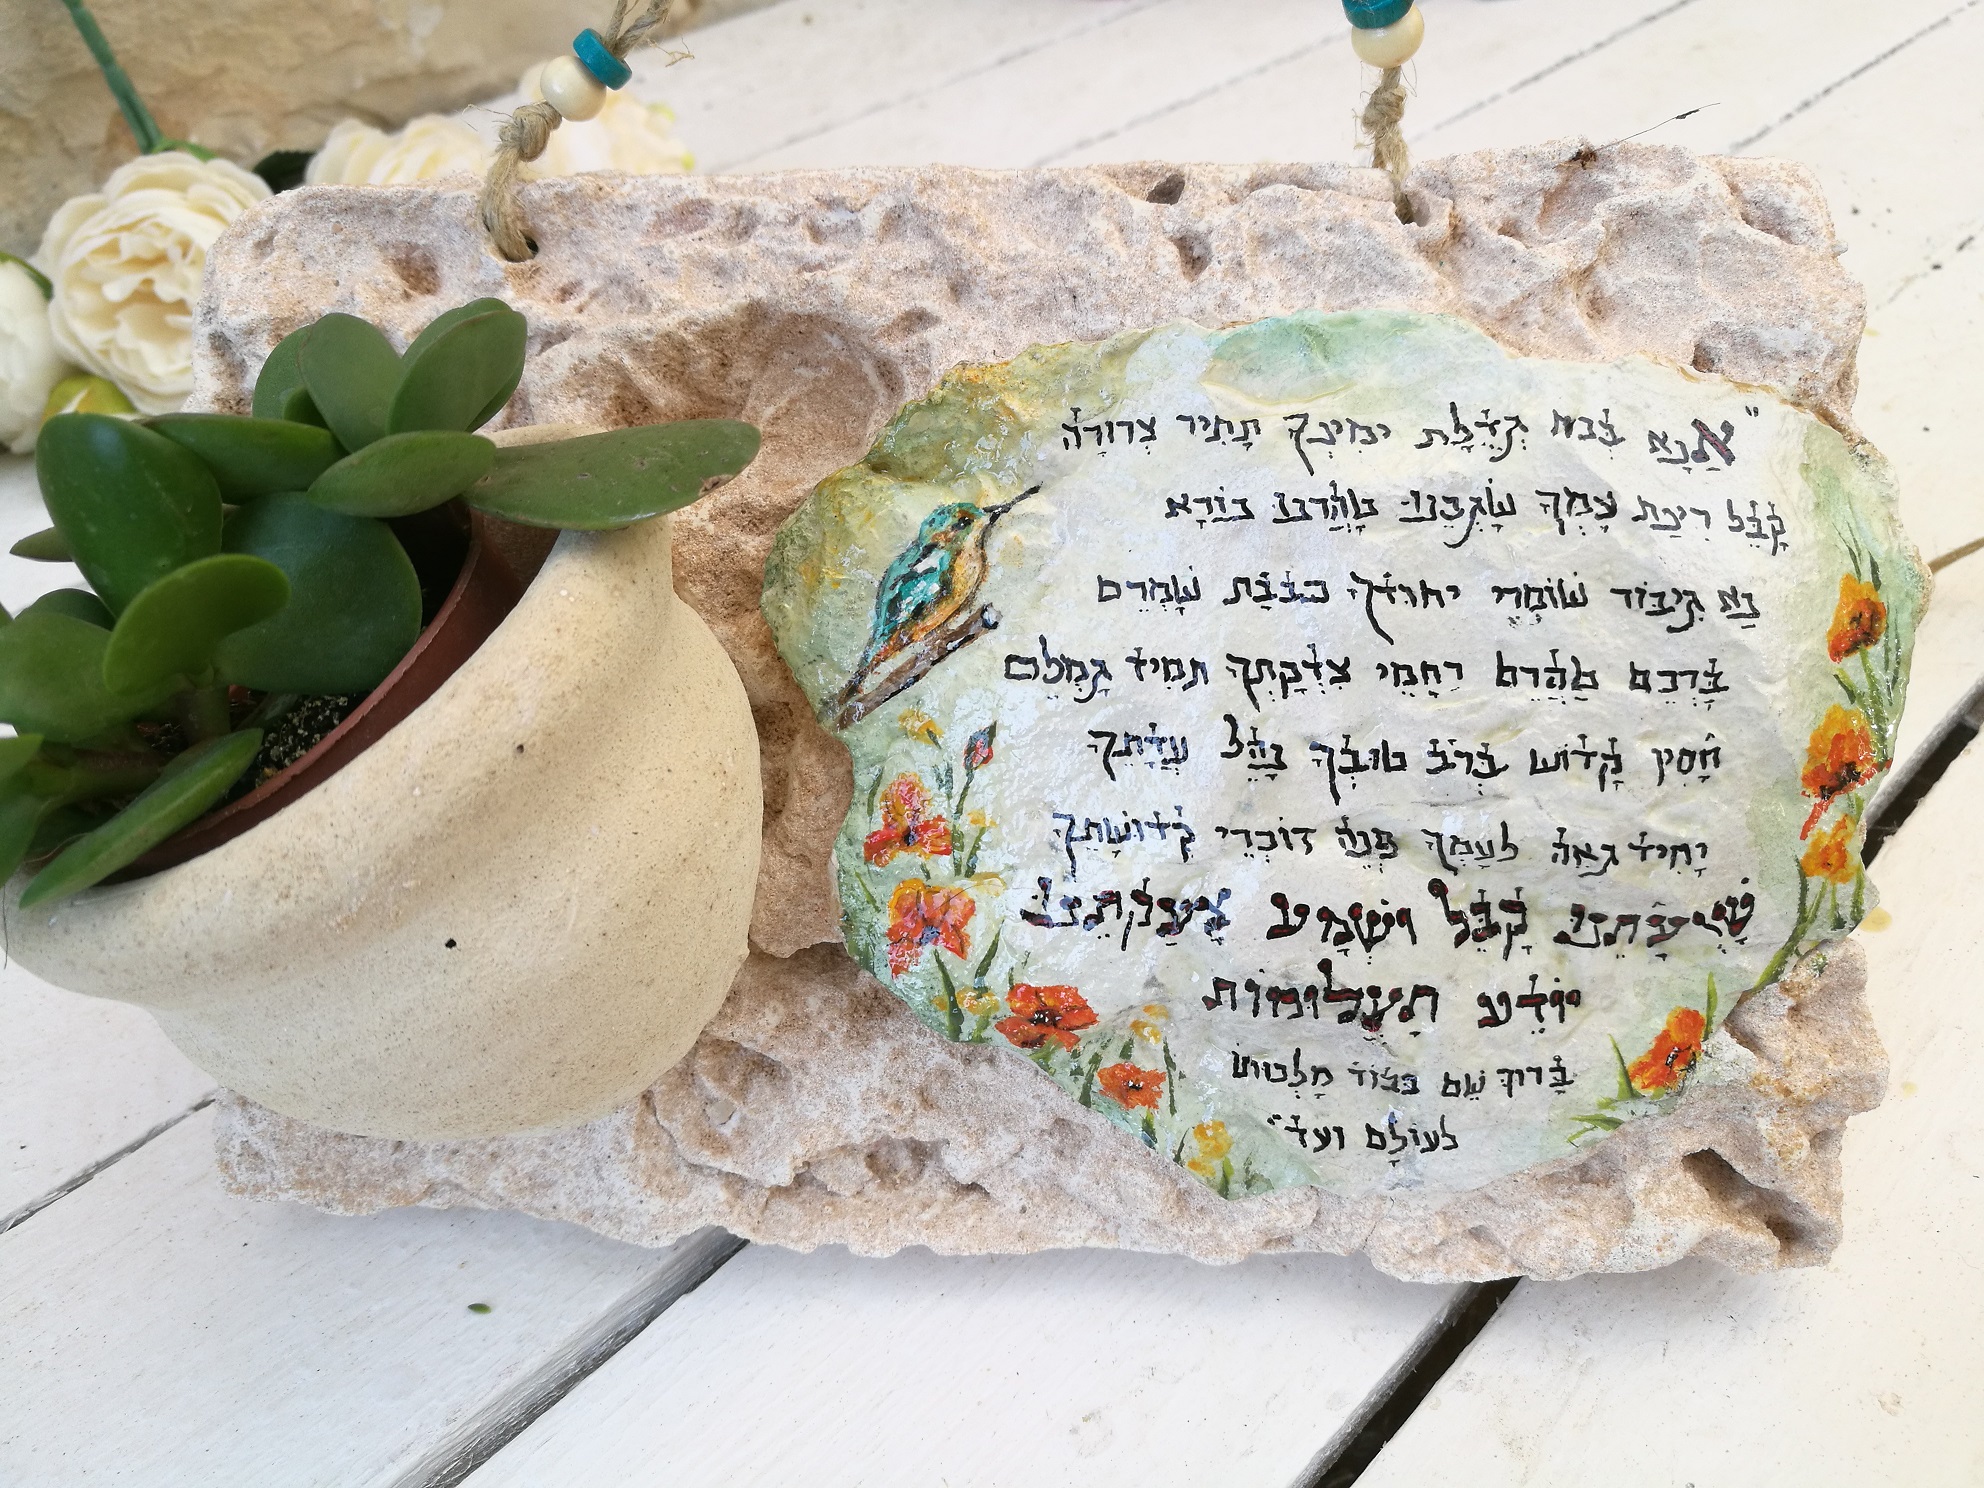 "אַנָּא בְּכֹחַ גְּדֻלַּת יְמִינְךָ תַּתִּיר צְרוּרָה
קַבֵּל רִינַת עַמְּךָ שַׂגְּבֵנוּ טַהֲרֵנוּ נוֹרָא
נָא גִיבּוֹר שׁוֹמְרֵי יחודך כְּבָבַת שָׁמְרֵם
בָּרְכֵם טַהֲרֵם רַחֲמֵי צִדְקָתְךָ תמיד גָּמְלֵם
חָסִין קָדוֹשׁ בְּרֹב טוּבְךָ נַהֵל עֲדָתְךָ
יָחִיד גֵּאֶה לְעַמְּךָ פְּנֵה זוֹכְרֵי קְדוּשָׁתֶךָ
שַׁוְעָתֵנוּ קַבֵּל וּשְׁמַע צַעֲקָתֵנוּ
יוֹדֵעַ תַּעֲלוּמוֹת
בָּרוּךְ שֵׁם כְּבוֹד מַלְכוּתוֹ
לעוֹלָם ועד"